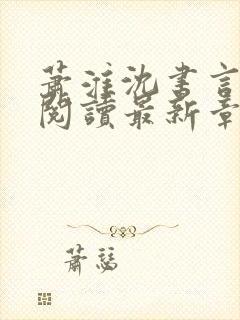 蕭淮沈書言
閱讀最新章
蕭瑟